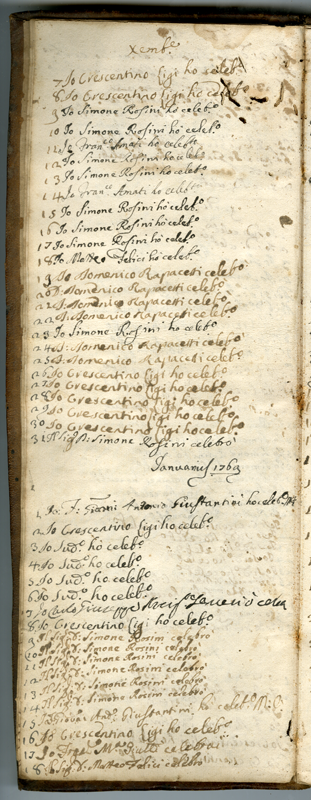 Xembe
7 Io Crescentino Gigi ho celebº
8 Io Crescentino Gigi ho celebº
9 Io Simone Rosini ho celebº
10 Io Simone Rosini ho celebº
11 Io Franº Amati ho celebº
12 Io Simone Rosini ho celebº
13 Io Simone Rosini ho celebº
14 Io Franº Amati ho celebº
15 Io Simone Rosini ho celebº
16 Io Simone Rosini ho celebº
17 Io Simone Rosini ho celebº
18 Io Matteo Felici ho celebº
19 Io Domenico Rapacetti celebº
20 Domenico Rapacetti celebº
21 Domenico Rapacetti celebº
22 Domenico Rapacetti celebº
23 Io Simone Rosini ho celebº
24 Domenico Rapacetti celebº
25 Domenico Rapacetti celebº
26 Io Crescentino Gigi ho celebº
27 Io Crescentino Gigi ho celebº
28 Io Crescentino Gigi ho celebº
29 Io Crescentino Gigi ho celebº
30 Io Crescentino Gigi ho celebº
31 Il Sig D: Simone Rosini celebrò
Januarius 1762
1 Io Gianni Antonio Giustantini ho celebº
2 Io Crescentino Gigi ho celebº
3 Io Sudº ho celebº
4 Io Sudº ho celebº
5 Io Sudº ho celebº
6 Io Sudº ho celebº
7 Io Carlo Giuseppe
8 Io Crescentino Gigi ho celebº
9 Il Sig D: Simone Rosini celebrò
10 Il Sig D: Simone Rosini celebrò
11 Il Sig D: Simone Rosini celebrò
12 Il Sig D: Simone Rosini celebrò
13 Il Sig D: Simone Rosini celebrò
14 Il Sig D: Simone Rosini celebrò
15 Io Giovan Antº Giustantini ho celebº
16 Io Crescentino Gigi ho celebº
17 Io celebrai
18 Il Sig D: Matteo Felici celebrò